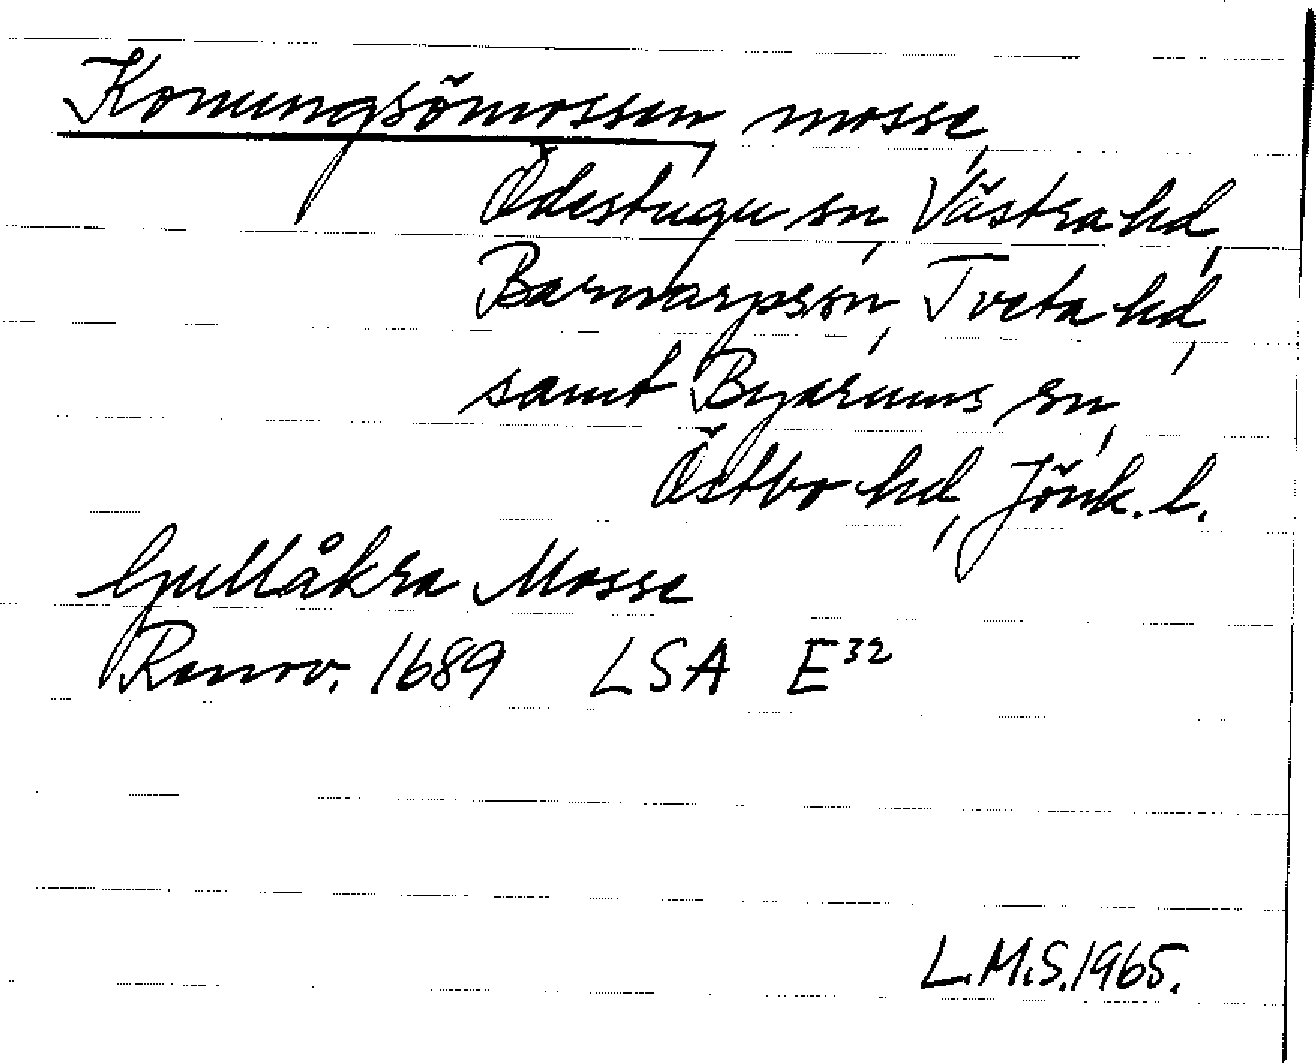 Konungsömossen, mosse,
Ödestugu sn, Västra hd,
Barnarps sn, Tveta hd,
samt Byarums sn,
Östbo hd, Jönk. l.
Gullåkra Mosse
Renov. 1689 LSA E32
L.M.S. 1965.